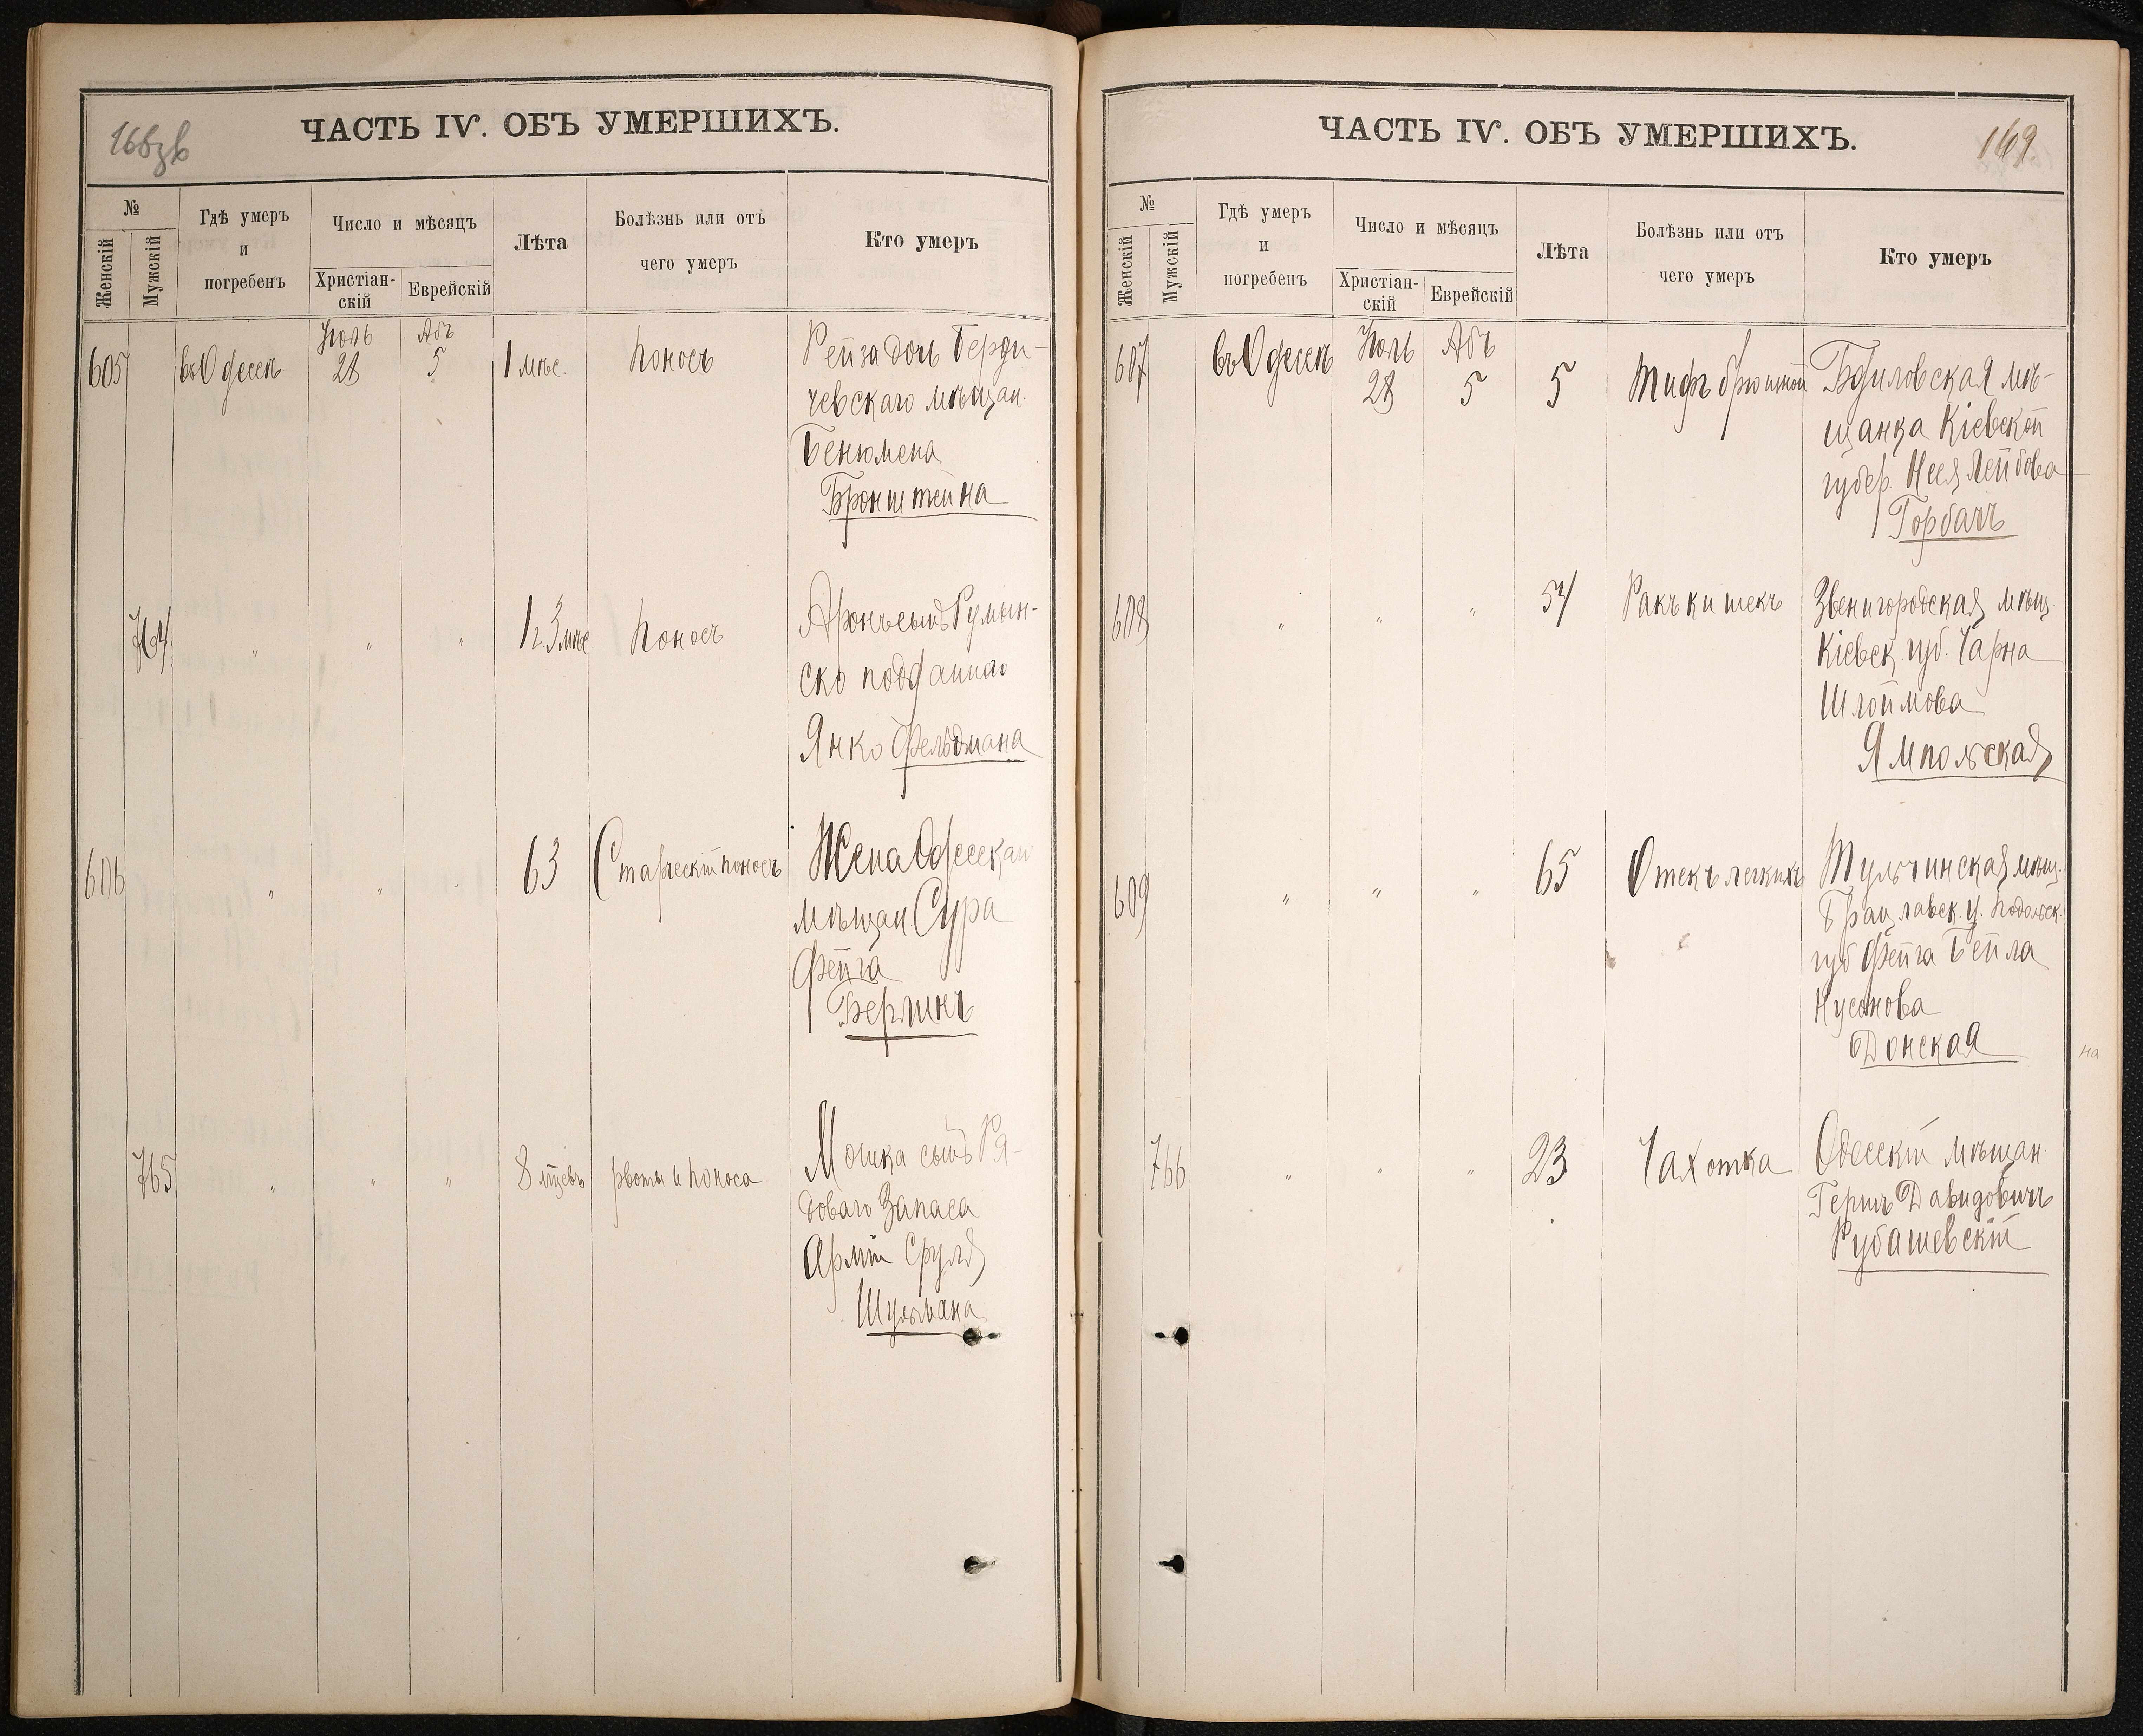 168об
ЧАСТЬ IV. ОБЪ УМЕРШИХЪ.
№
Женскій
Мужскій
Гдѣ умеръ
и
погребенъ
Число и мѣсяцъ
Христіан-
скій
Еврейскій
Лѣта
Болѣзнь или отъ
чего умеръ
Кто умеръ
605 въ Одессѣ Іюль 28 Абъ 5 1 мѣс. Поносъ
Рейза дочь Берди-
чевскаго мѣщан.
Бенюмена
Бронштейна
764 " " " 1 г. 3 мѣс. Поносъ
Аронъ сынъ Румын-
ско подданнаго
Янко Фельдмана
606 " " " 63 Старческій поносъ
Жена Одесскаго
мѣщан Сура
Фейга
Берлинъ
765 " " " 8 мѣсц рвоты и поноса
Мошка сынъ Ря-
доваго Запаса
Арміи Сруля
Шульмана
ЧАСТЬ IV. ОБЪ УМЕРШИХЪ.
169
№
Женскій
Мужскій
Гдѣ умеръ
и
погребенъ
Число и мѣсяцъ
Христіан-
скій
Еврейскій
Лѣта
Болѣзнь или отъ
чего умеръ
Кто умеръ
607 въ Одессѣ Іюль 28 Абъ 5 5 Тифъ брюшной
мѣ-
щанка Кіевской
губер. Неся Лейбова
Горбачъ
608 " " " 54 Ракъ кишекъ
Звенигородская мѣщ.
Кіевск. губ. Чарна
Шлоймова
Ямпольская
609 " " " 65 Отекъ легкихъ
Тульчинская мѣщ.
Брацлавск. у. Подольск.
губ Фейга Бейла
Нусонова
Донская
на
766 " " " 23 Чахотка
Одесскій мѣщан.
Гершъ Давидовичъ
Рубашевскій